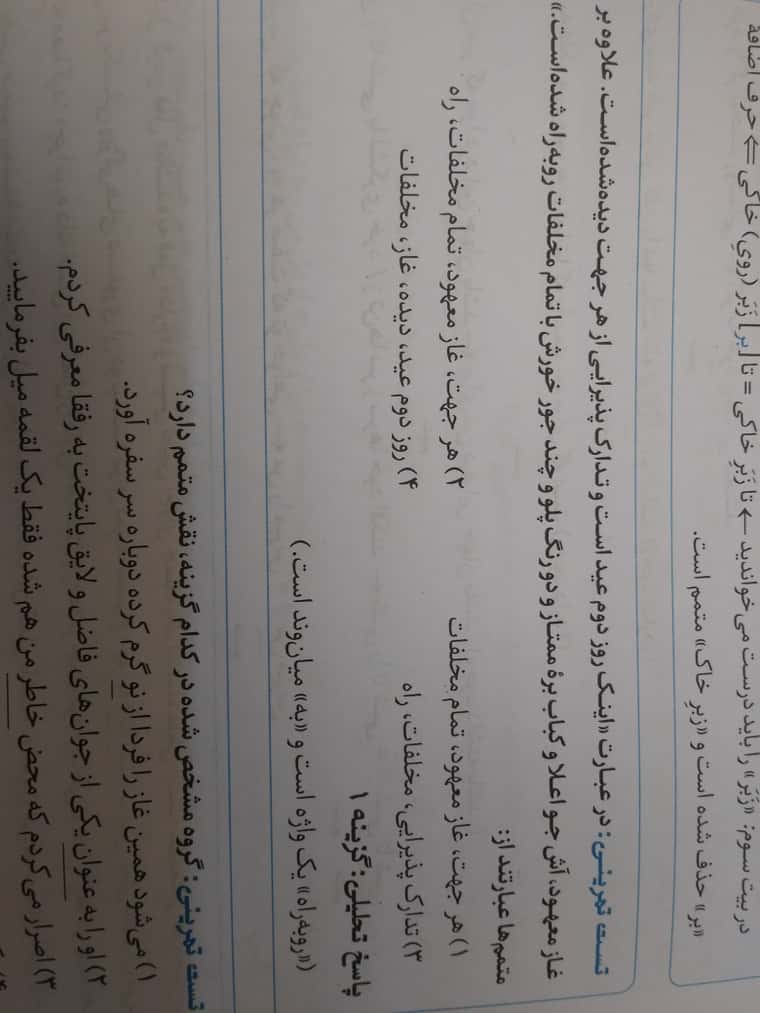 در بیت سوم: «زَبَر» را باید درست می‌خواندید ← تا زَبَرِ خاکی = تا [بر] زَبَرِ (رویِ) خاکی ⇐ حرف اضافهٔ
«بر» حذف شده است و «زبرِ خاک» متمم است.
تست تمرینی: در عبارت «اینک روز دوم عید است و تدارک پذیرایی از هر جهت دیده شده است. علاوه بر
غاز معهود، آش جو اعلا و کباب برهٔ ممتاز و دو رنگ پلو و چند جور خورش با تمام مخلفات روبه‌راه شده است.»
متمم‌ها عبارتند از:
۱) هر جهت، غاز معهود، تمام مخلفات
۲) هر جهت، غاز معهود، تمام مخلفات، راه
۳) تدارک پذیرایی، مخلفات، راه
۴) روز دوم عید، دیده، غاز، مخلفات
پاسخ تحلیلی: گزینه ۱
(«روبه‌راه» یک واژه است و «به» میان‌وند است.)
تست تمرینی: گروه مشخص شده در کدام گزینه، نقش متمم دارد؟
۱) می‌شود همین غاز را فردا از نو گرم کرده دوباره سر سفره آورد.
۲) او را به عنوان یکی از جوان‌های فاضل و لایق پایتخت به رفقا معرفی کردم.
۳) اصرار می‌کردم که محض خاطر من هم شده فقط یک لقمه میل بفرمایید.
۴)